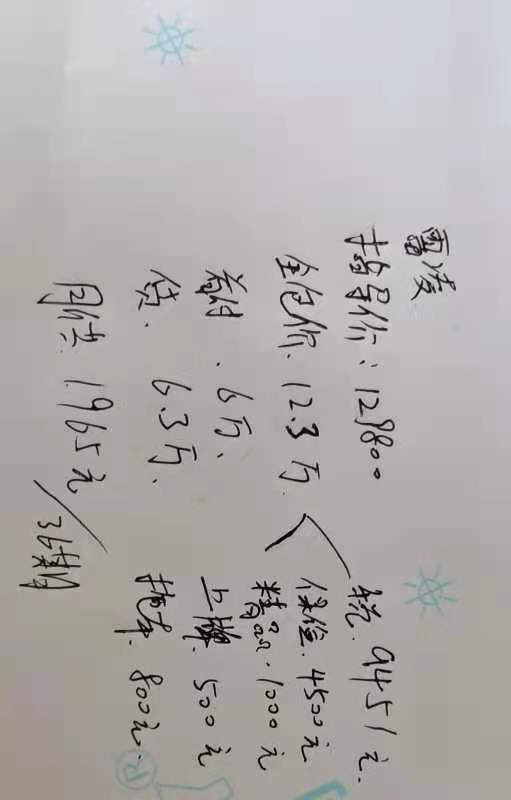 雷凌
指导价：129800
全包价. 12.3万.
首付. 6万.
贷. 6.3万.
月供. 1965元/36期
税. 9451元.
保险. 4500元
精品. 1000元
上牌. 500元
抵押. 800元.
R